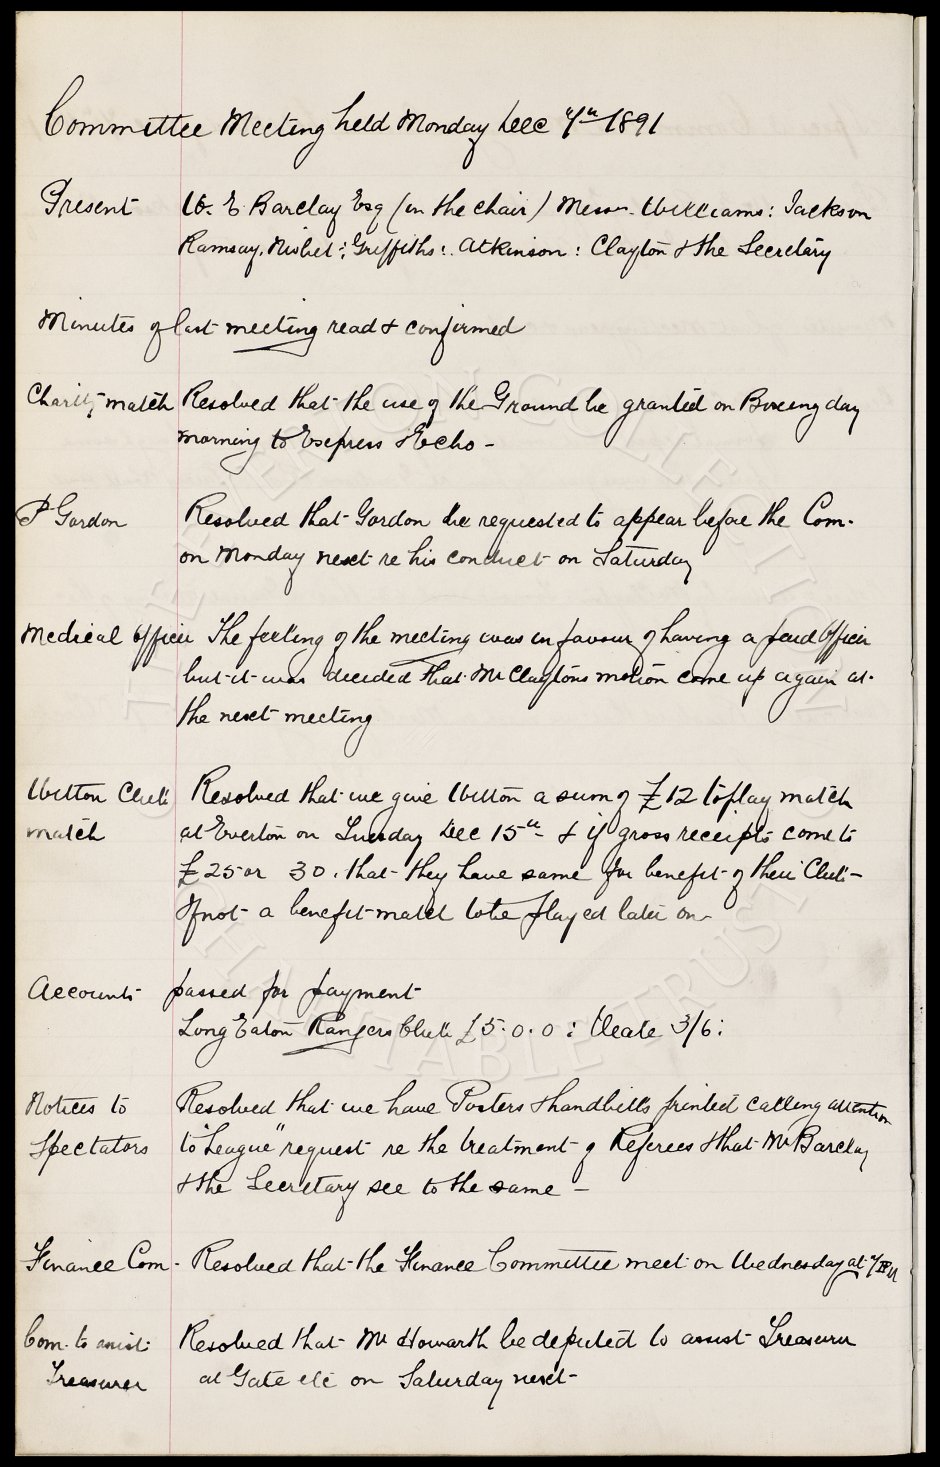 Committee Meeting held Monday Dec 7th 1891
Present W. E. Barclay Esq (in the chair) Messrs. Williams: Jackson
Ramsay. Nisbet: Griffiths: Atkinson: Clayton & the Secretary
Minutes of last meeting read & confirmed
Charity match Resolved that the use of the Ground be granted on Boxing day
morning to Express & Echo -
P Gordon Resolved that Gordon be requested to appear before the Com.
on Monday next re his conduct on Saturday
Medical Officer The feeling of the meeting was in favour of having a paid Officer
but it was decided that Mr Claytons motion come up again at
the next meeting
Witton Club Resolved that we give Witton a sum of £12 to play match
match at Everton on Tuesday Dec 15th & if gross receipts come to
£25 or 30. that they have same for benefit of their Club -
If not a benefit match to be played later on
Accounts passed for payment
Long Eaton Rangers Club £5.0.0: Veale 3/6:
Notices to Resolved that we have Posters & handbills printed calling attention
Spectators to "League" request re the treatment of Referees & that Mr Barclay
& the Secretary see to the same -
Finance Com - Resolved that the Finance Committee meet on Wednesday at 7 PM
Com. to assist Resolved that Mr Howarth be deputed to assist Treasurer
Treasurer at Gate etc on Saturday next -
THE EVERTON COLLECTION
CHARITABLE TRUST